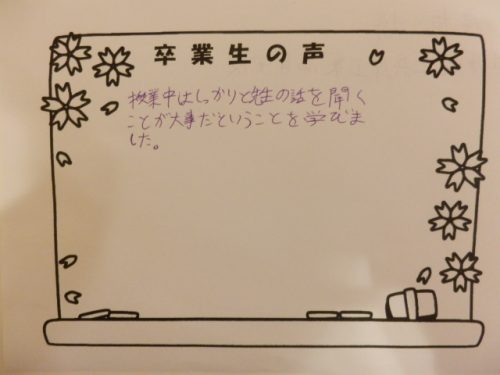 卒業生の声
授業中はしっかりと先生の話を聞く
ことが大事だということを学びま
した。